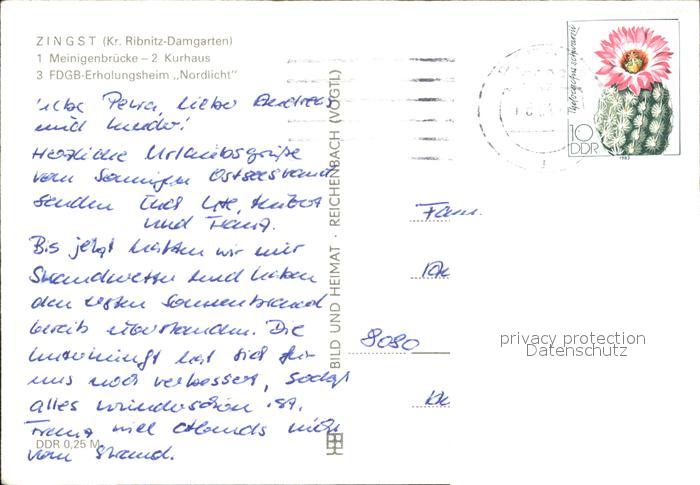 ZINGST (Kr. Ribnitz-Damgarten)
1 Meinigenbrücke – 2 Kurhaus
3 FDGB-Erholungsheim „Nordlicht"
Liebe Petra, lieber Andreas
und Kinder!
Herzliche Urlaubsgrüße
vom Sonnigen Ostseestrand
senden Euch Ute, Hubert
und Franz.
Bis jetzt hatten wir nur
Strandwetter und haben
den ersten Sonnenbrand
bereits überstanden. Die
Unterkunft hat sich für
uns noch verbessert, sodaß
alles wunderschön ist.
Franz will abends nicht
vom Strand.
DDR 0,25 M
BILD UND HEIMAT · REICHENBACH (VOGTL)
10
DDR
1983
Fam.
8080
privacy protection
Datenschutz